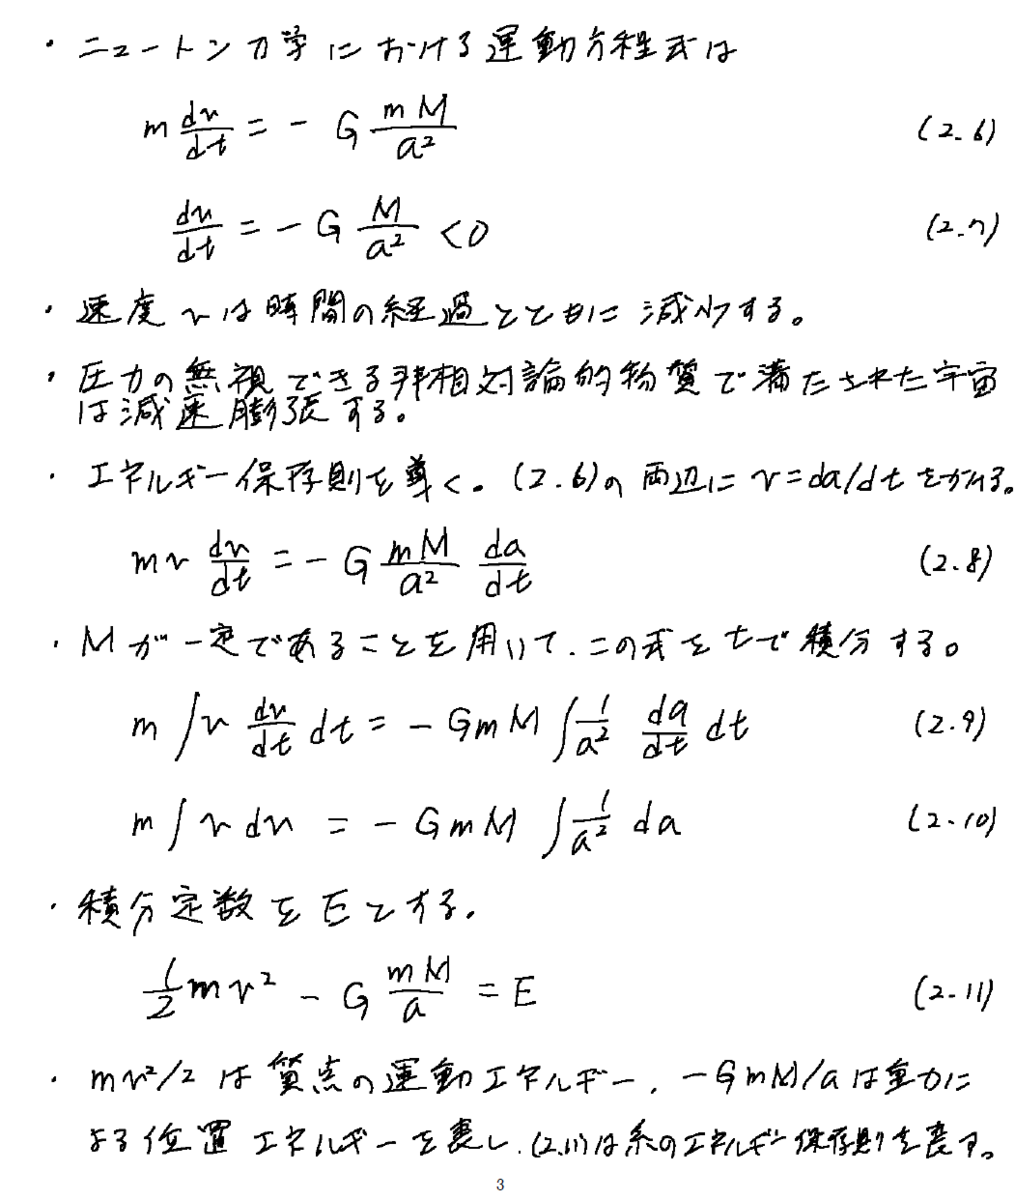 ・ニュートン力学における運動方程式は
m dv/dt = - G mM/a² (2.6)
dv/dt = - G M/a² < 0 (2.7)
・速度 v は時間の経過とともに減少する。
・圧力の無視できる非相対論的物質で満たされた宇宙
は減速膨張する。
・エネルギー保存則を導く。(2.6)の両辺に v = da/dt をかける。
mv dv/dt = - G mM/a² da/dt (2.8)
・Mが一定であることを用いて、この式を t で積分する。
m ∫ v dv/dt dt = - GmM ∫ 1/a² da/dt dt (2.9)
m ∫ v dv = - GmM ∫ 1/a² da (2.10)
・積分定数を E とする。
1/2 mv² - G mM/a = E (2.11)
・mv²/2 は質点の運動エネルギー、-GmM/a は重力に
よる位置エネルギーを表し、(2.11)は系のエネルギー保存則を表す。
3